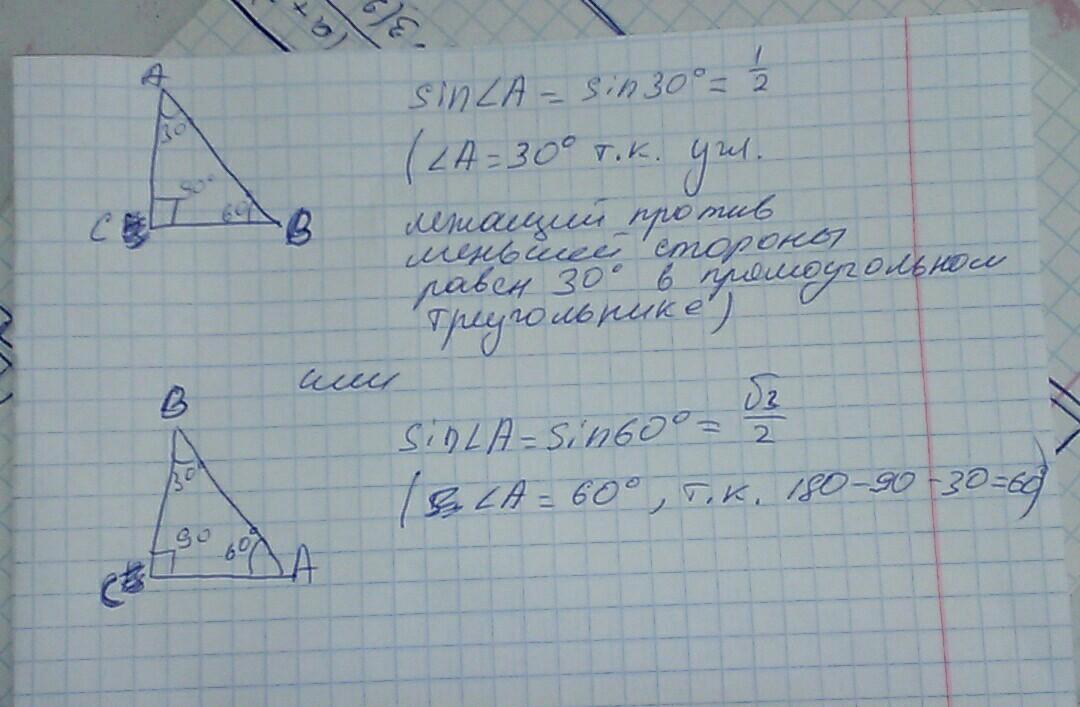 A
30°
90°
60°
C
B
sin∠A = sin30° = 1/2
(∠A = 30° т.к. угл.
лежащий против
меньшей стороны
равен 30° в прямоугольном
треугольнике)
или
B
30°
90
60°
C
A
sin∠A = sin60° = √3/2
(∠A = 60°, т.к. 180-90-30=60)